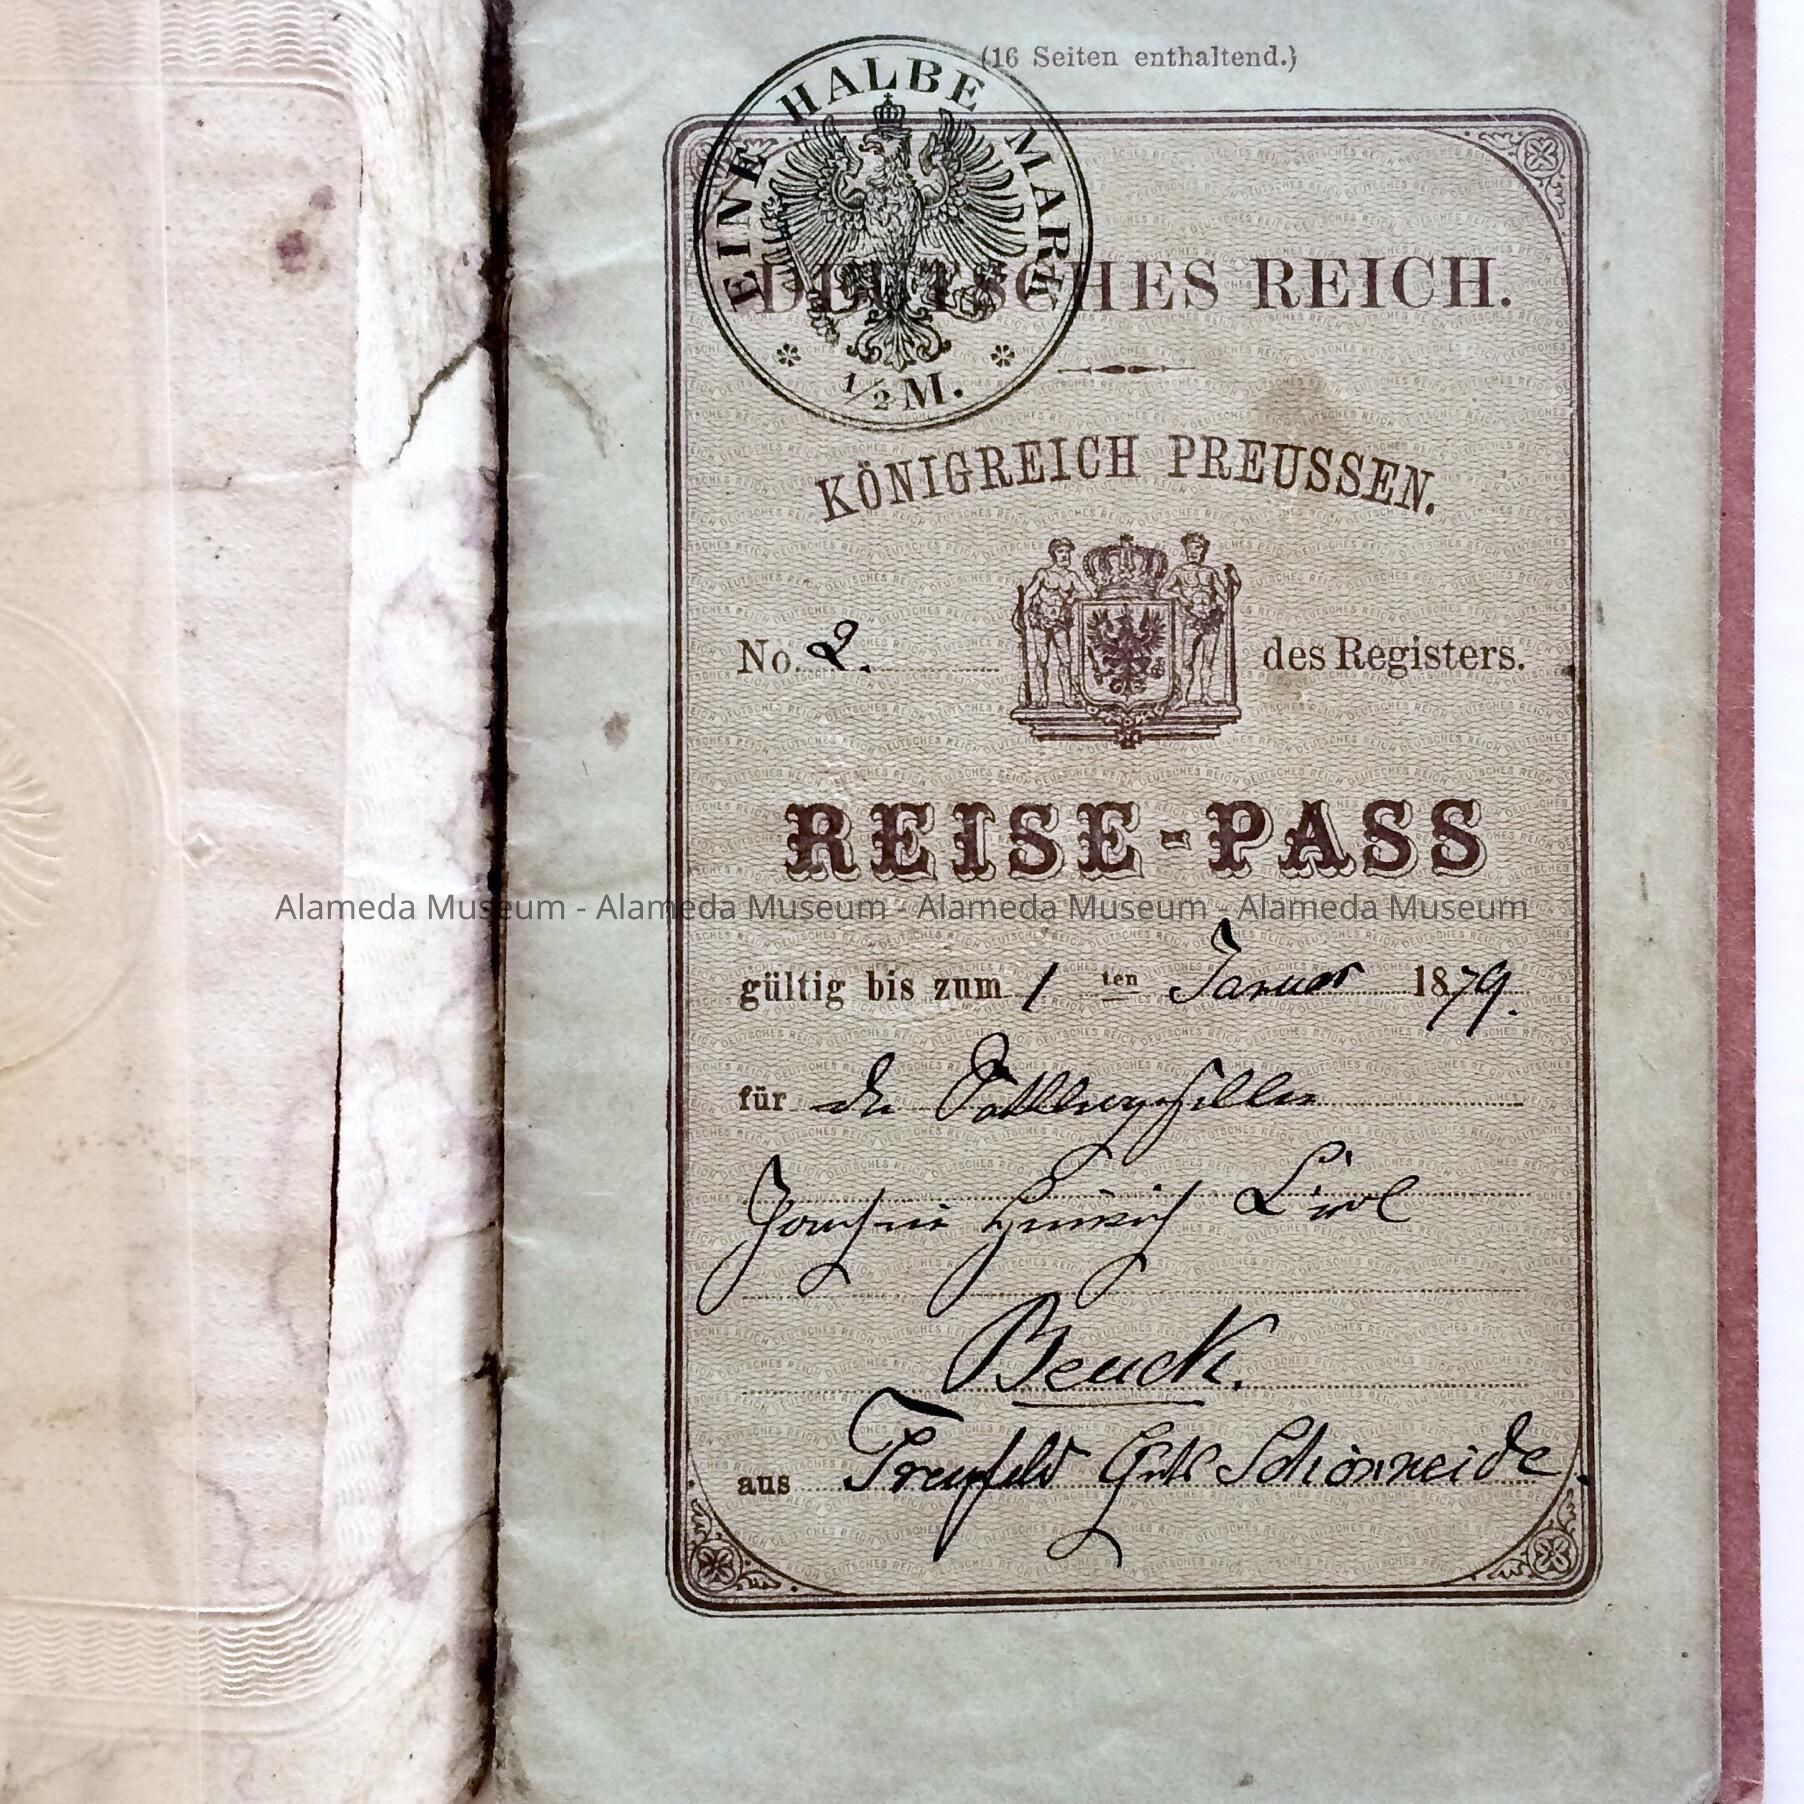 (16 Seiten enthaltend.)
EINE HALBE MARK
1/2 M.
DEUTSCHES REICH.
KÖNIGREICH PREUSSEN.
No. 2. des Registers.
REISE-PASS
Alameda Museum - Alameda Museum - Alameda Museum - Alameda Museum
gültig bis zum 1 ten Januar 1879.
für den Sattlergesellen
Joachim Heinrich
Beuck.
aus Guts Schönweide.